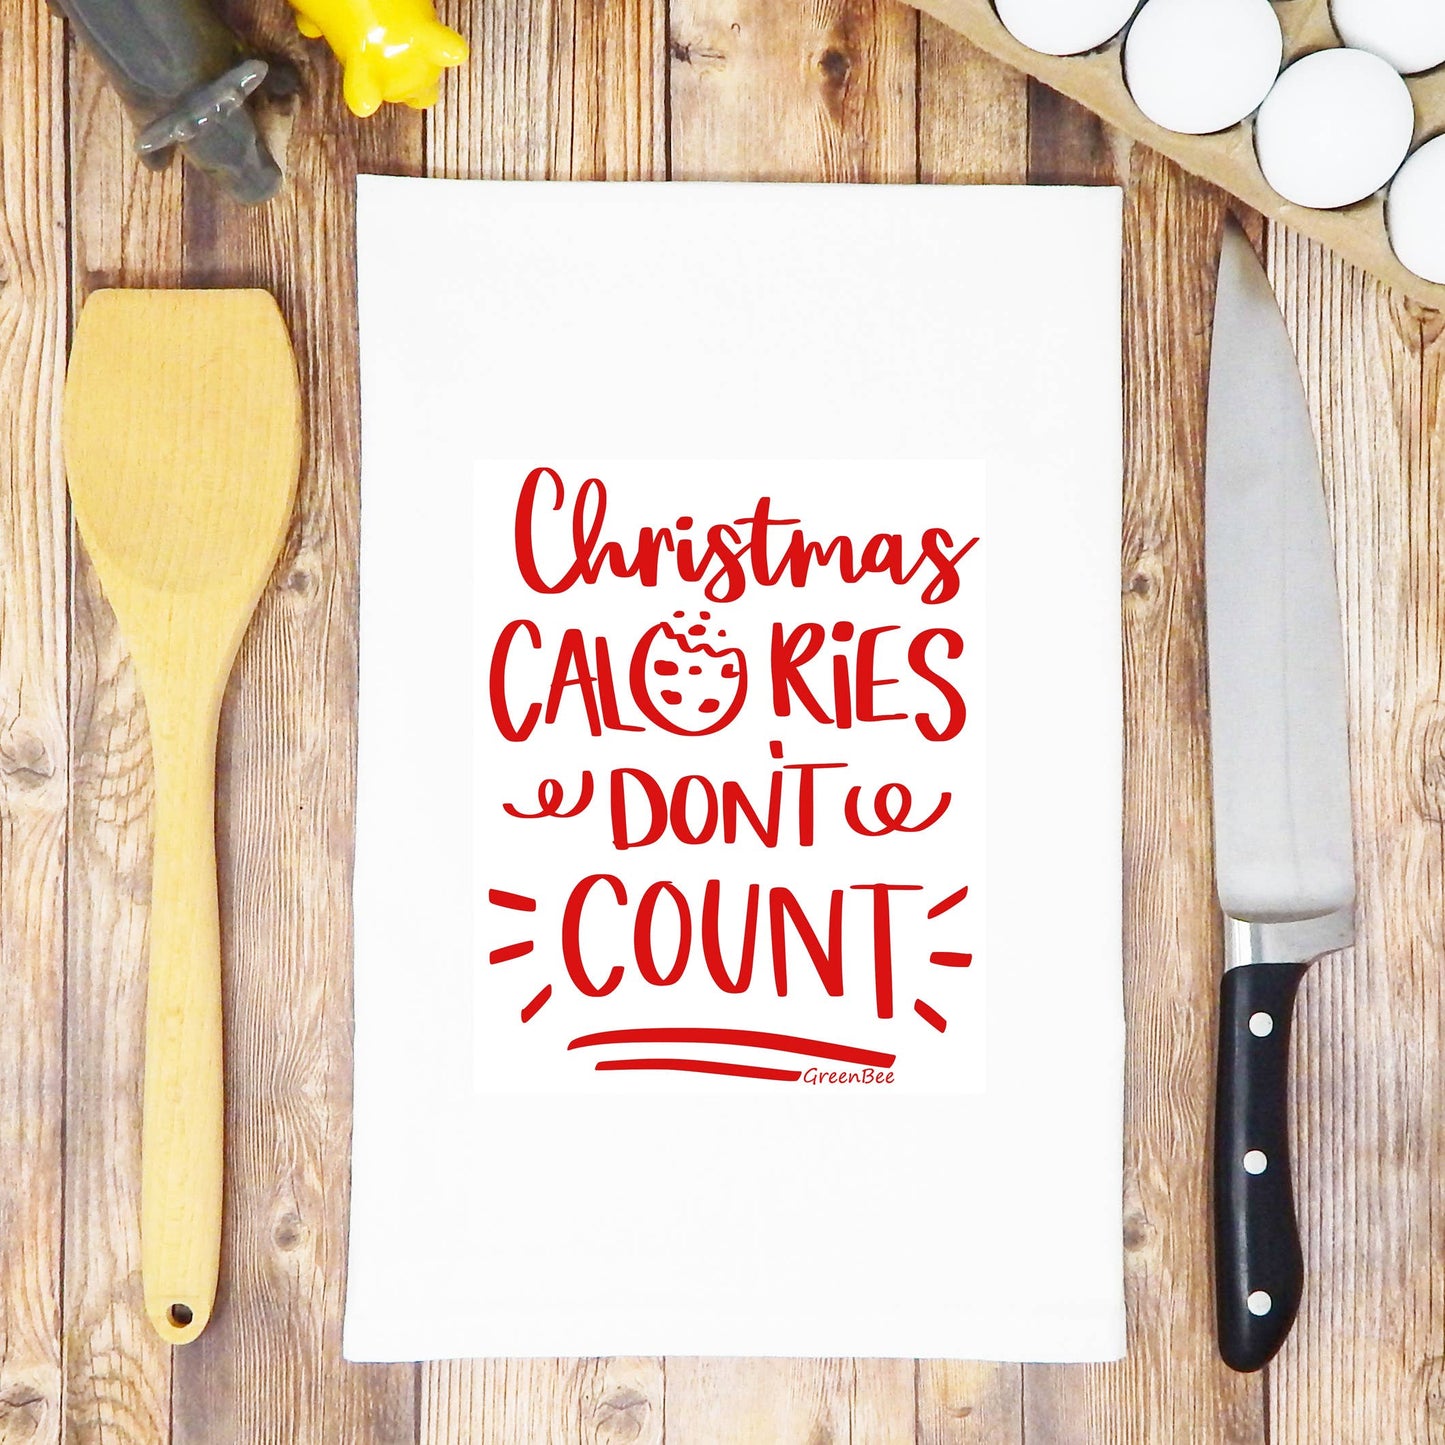 Christmas
CALORiES
DON'T
COUNT
GreenBee